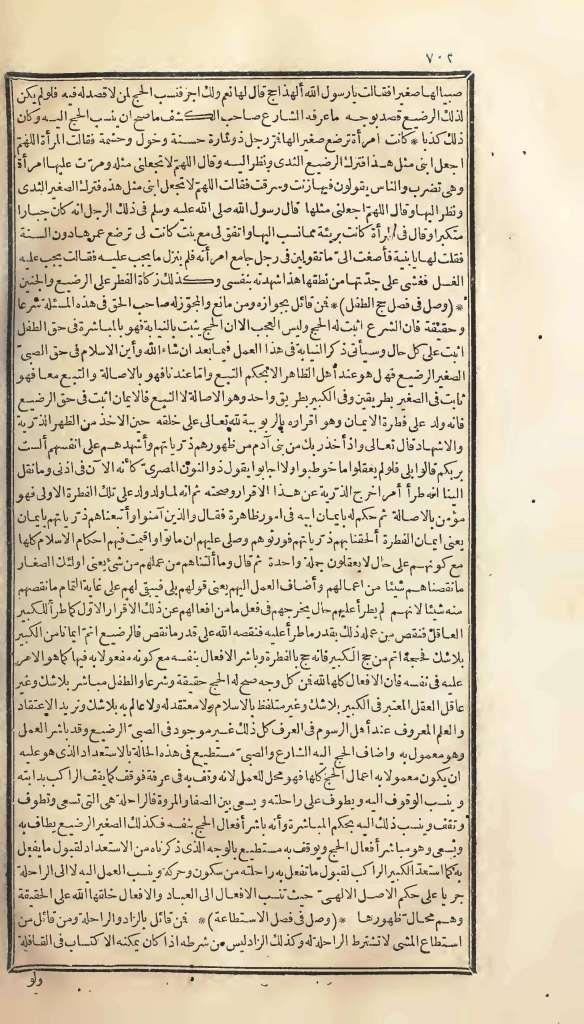 ٧٠٢
صبيا الها صغيرا فقالت يا رسول الله ألهذا حج قال لها نعم ولك أجر فنسب الحج لمن لا قصد له فيه فلو لم يكن
لذلك الرضيع قصد بوجه ما عرفه الشارع صاحب الكشف ما صح أن ينسب الحج اليه وكان
ذلك كذبا * كانت امرأة ترضع صغيرا لها فمر رجل ذو شارة حسنة وخول وحشمة فقالت المرأة اللهم
اجعل ابنى مثل هذا فترك الرضيع الثدى ونظر اليه وقال اللهم لا تجعلنى مثله ومرت عليها امرأة
وهى تضرب والناس يقولون فيها زنت وسرقت فقالت اللهم لا تجعل ابنى مثل هذه فترك الصغير الثدى
ونظر اليها وقال اللهم اجعلنى مثلها قال رسول الله صلى الله عليه وسلم فى ذلك الرجل انه كان جبارا
متكبرا وقال فى المرأة كانت بريئة مما نسب اليها واتفق لى مع بنت كانت لى ترضع عمرها دون السنة
فقلت لها يا بنية فأصغت الى ما تقولين فى رجل جامع امرأته فلم ينزل ما يجب عليه فقالت يجب عليه
الغسل فغشى على جدتها من نطقها هذا شهدته بنفسى وكذلك زكاة الفطر على الرضيع والجنين
* (وصل فى فصل حج الطفل) * فمن قائل بجوازه ومن مانع والمجوز له صاحب الحق فى هذه المسئلة شرعا
وحقيقة فان الشرع أثبت له الحج وليس العجب الا أن الحج يثبت بالنيابة فهو بالمباشرة فى حق الطفل
اثبت على كل حال وسيأتى ذكر النيابة فى هذا العمل فيما بعد ان شاء الله وأين الاسلام فى حق الصبى
الصغير الرضيع فهل هو عند أهل الظاهر الا بحكم التبع وأما عندنا فهو بالاصالة والتبع معا فهو
ثابت فى الصغير بطريقين وفى الكبير بطريق واحد وهو الاصالة لا التبع فالايمان اثبت فى حق الرضيع
فانه ولد على فطرة الايمان وهو اقراره بالربوبية لله تعالى على خلقه حين الاخذ من الظهر الذرية
والاشهاد قال تعالى واذ أخذ ربك من بنى آدم من ظهورهم ذرياتهم وأشهدهم على انفسهم ألست
بربكم قالوا بلى فلو لم يعقلوا ما خوطبوا ولا اجابوا يقول ذو النون المصرى كأنه الآن فى اذنى وما نقل
الينا انه طرأ أمر أخرج الذرية عن هذا الاقرار وصحته ثم انه لما ولد ولد على تلك الفطرة الاولى فهو
مؤمن بالاصالة ثم حكم له بايمان ابيه فى امور ظاهرة فقال والذين آمنوا وأتبعناهم ذرياتهم بايمان
يعنى ايمان الفطرة ألحقنا بهم ذرياتهم فورثوهم وصلى عليهم ان ماتوا واقيمت فيهم احكام الاسلام كلها
مع كونهم على حال لا يعقلون جملة واحدة ثم قال وما ألتناهم من عملهم من شئ يعنى اولئك الصغار
ما نقصناهم شيئا من اعمالهم وأضاف العمل اليهم يعنى قولهم بلى فبقى لهم على غاية التمام ما نقصهم
منه شيئا لانهم لم يطرأ عليهم حال يخرجهم فى فعل ما من افعالهم عن ذلك الاقرار الاول كما طرأ للكبير
العاقل فنقص من عمله ذلك بقدر ما طرأ عليه فنقصه الله على قدر ما نقص فالرضيع اتم ايمانا من الكبير
بلا شك فحجه أتم من حج الكبير فانه حج بالفطرة وباشر الافعال بنفسه مع كونه مفعولا به فيها كما هو الامر
عليه فى نفسه فان الافعال كلها لله فمن كل وجه صح له الحج حقيقة وشرعا والطفل مباشر بلا شك وغير
عاقل العقل المعتبر فى الكبير بلا شك وغير متلفظ بالاسلام ولا معتقد له ولا عالم به بلا شك ونريد الاعتقاد
والعلم المعروف عند أهل الرسوم فى العرف كل ذلك غير موجود فى الصبى الرضيع وقد باشر العمل
وهو معمول به واضاف الحج اليه الشارع والصبى مستطيع فى هذه الحالة بالاستعداد الذى هو عليه
ان يكون معمولا به اعمال الحج كلها فهو محل للعمل لانه وقف به فى عرفة فوقف كما يقف الراكب بدابته
وينسب الوقوف اليه ويطوف على راحلته ويسعى بين الصفا والمروة فالراحلة هى التى تسعى وتطوف
وتقف وينسب ذلك اليه بحكم المباشرة وأنه باشر أفعال الحج بنفسه فكذلك الصغير الرضيع يطاف به
ويسعى وهو مباشر أفعال الحج ويوقف به مستطيع بالوجه الذى ذكرناه من الاستعداد لقبول ما يفعل
به كما استعد الكبير الراكب لقبول ما تفعل به راحلته من سكون وحركة وينسب العمل اليه لا الى الراحلة
جريا على حكم الاصل الالهى حيث تنسب الافعال الى العباد والافعال خلقها الله على الحقيقة
وهم محال ظهورها * (وصل فى فصل الاستطاعة) * فمن قائل بالزاد والراحلة ومن قائل من
استطاع المشى لا تشترط الراحلة له وكذلك الزاد ليس من شرطه اذا كان يمكنه الاكتساب فى القافلة
ولو